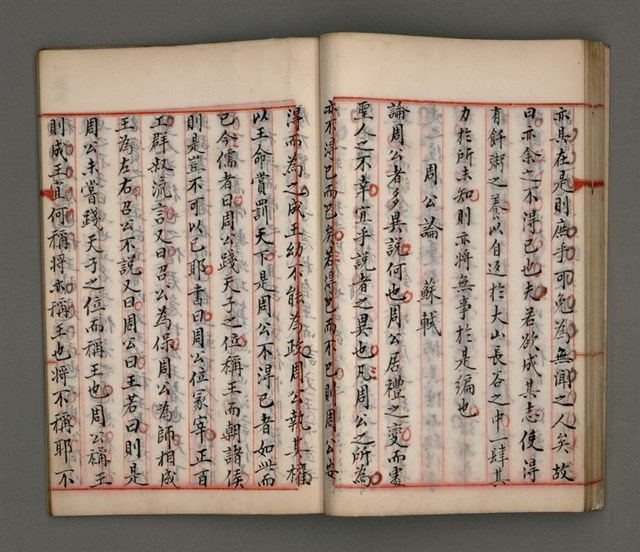 亦其在是則庶乎可勉為無聞之人矣故
曰亦余之不得已也夫若欲成其志使得
有飦粥之養以自适於大山長谷之中一肆其
力於所未知則亦將無事於是編也
周公論 蘇軾
論周公者多異說何也周公居禮之變而處
聖人之不幸宜乎說者之異也凡周公之所為
亦不得已而已矣若得已而不已則周公安
得而為之成王幼不能為政周公執其權
以王命賞罰天下是周公不得已者如此而
已今儒者曰周公踐天子之位稱王而朝諸侯
則是豈不可以已耶書曰周公位冢宰正百
工群叔流言又曰召公為保周公為師相成
王為左右召公不說又曰周公曰王若曰則是
周公未嘗踐天子之位而稱王也周公稱王
則成王宜何稱將亦稱王也將不稱耶不